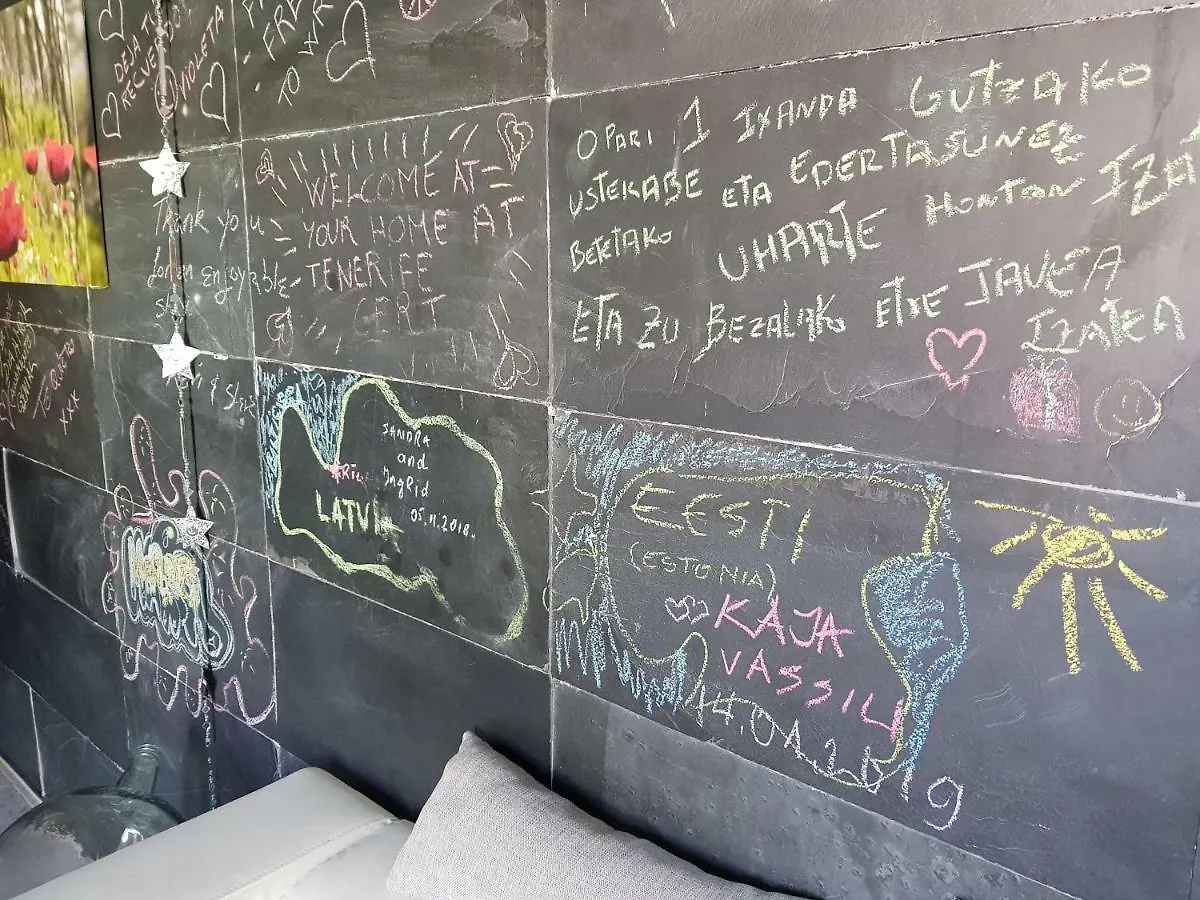 DEJA TU
RECUERDO
VIOLETA
TO
WELCOME AT
YOUR HOME AT
TENERIFE
GERT
Thank you
for an enjoyable
OPARI 1 IXANDA GUTZAKO
USTEKABE ETA EDERTASUNEZ
BETETAKO UHARTE HONTAN IZAT
ETA ZU BEZALAKO ETXE JAVEA
IZATEA
xxx
SANDRA
and
IngRid
LATVIA 05.11.2018.
EESTI
(ESTONIA)
KAJA
VASSILI
14.04.2019